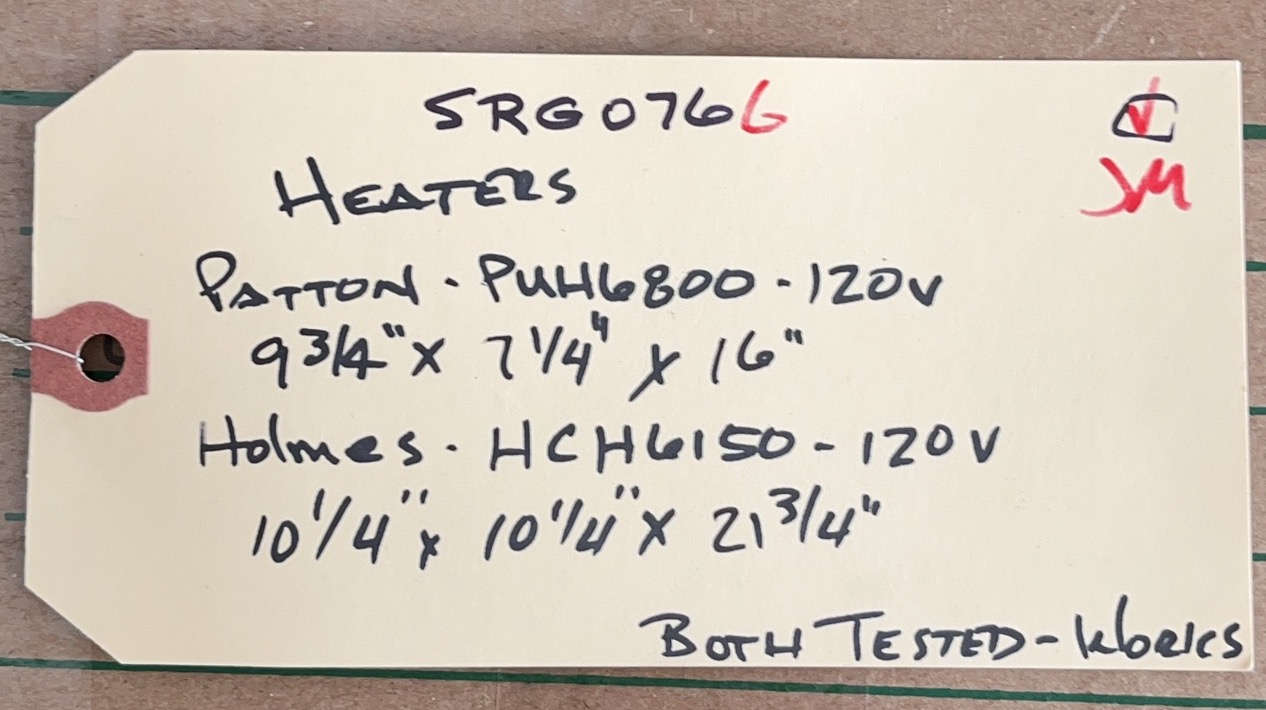 SRG0766
JM
HEATERS
PATTON - PUH6800 - 120V
9 3/4" x 7 1/4" x 16"
Holmes - HCH6150 - 120V
10 1/4" x 10 1/4" x 21 3/4"
BOTH TESTED - Works